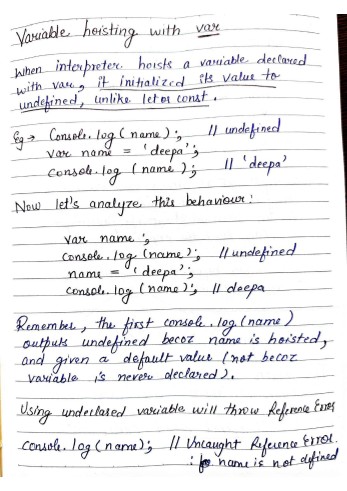 Variable hoisting with var
When interpreter hoists a variable declared
with var, it initialized its value to
undefined, unlike let or const.
Eg → Console.log(name); // undefined
var name = 'deepa';
console.log(name); // 'deepa'
Now let's analyze this behaviour:
var name;
console.log(name); // undefined
name = 'deepa';
console.log(name); // deepa
Remember, the first console.log(name)
outputs undefined becoz name is hoisted,
and given a default value (not becoz
variable is never declared).
Using undeclared variable will throw Reference Error
console.log(name); // Uncaught Reference Error.
: name is not defined